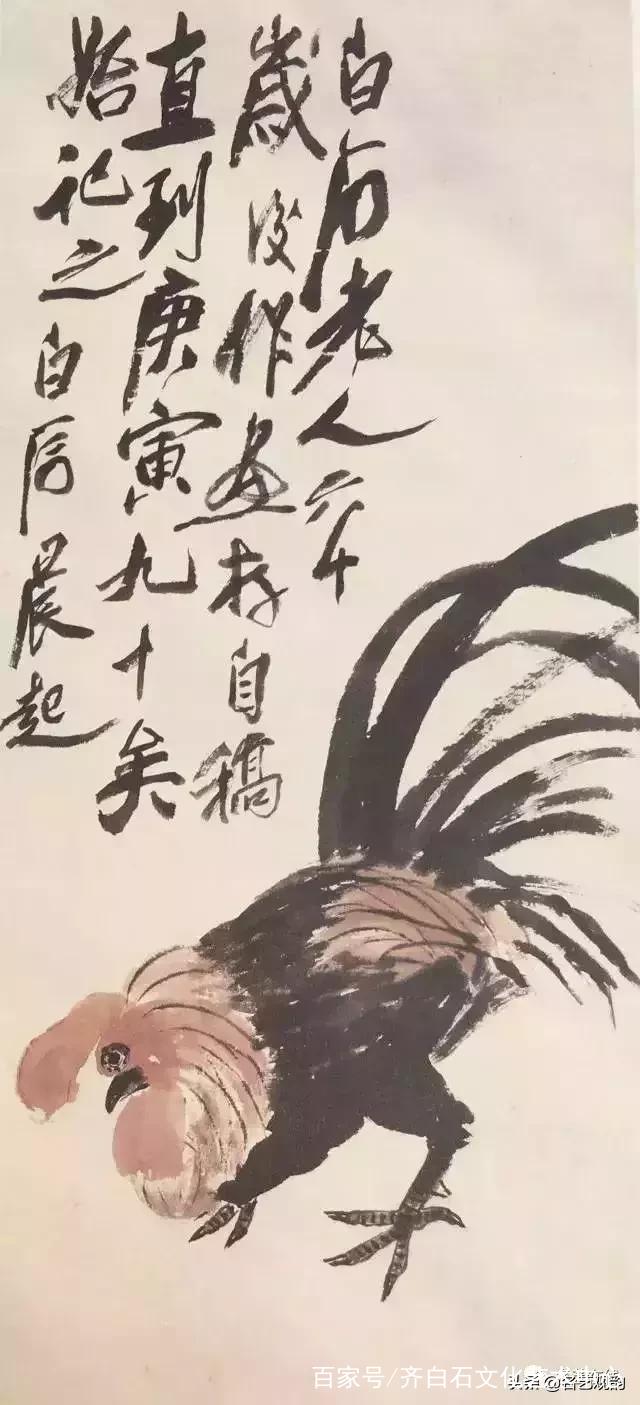 白石老人六十
歲後作画存自稿
直到庚寅九十矣
始記之白石晨起
百家号/齐白石文化
头条@名艺观韵